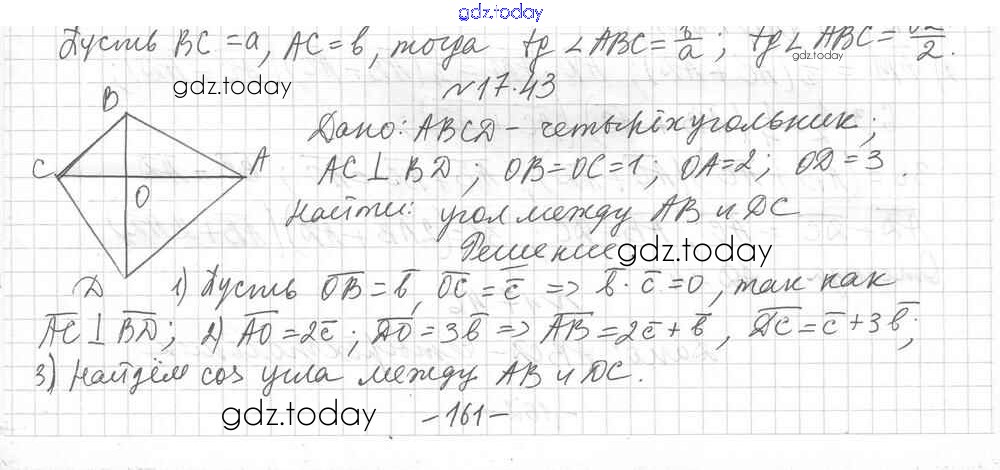 gdz.today
Пусть BC = a, AC = b, тогда tg ∠ABC = b/a; tg ∠ABC = /2.
gdz.today
gdz.today
№17.43
B
Дано: ABCD – четырёхугольник;
C A
AC ⊥ BD; OB = OC = 1; OA = 2; OD = 3.
O
Найти: угол между AB и DC
Решение
gdz.today
D
1) Пусть OB̅ = b̅, OC̅ = c̅ => b̅ · c̅ = 0, так как
AC̅ ⊥ BD̅; 2) AO̅ = 2c̅; DO̅ = 3b̅ => AB̅ = 2c̅ + b̅, DC̅ = c̅ + 3b̅;
3) Найдём cos угла между AB и DC.
gdz.today
–161–